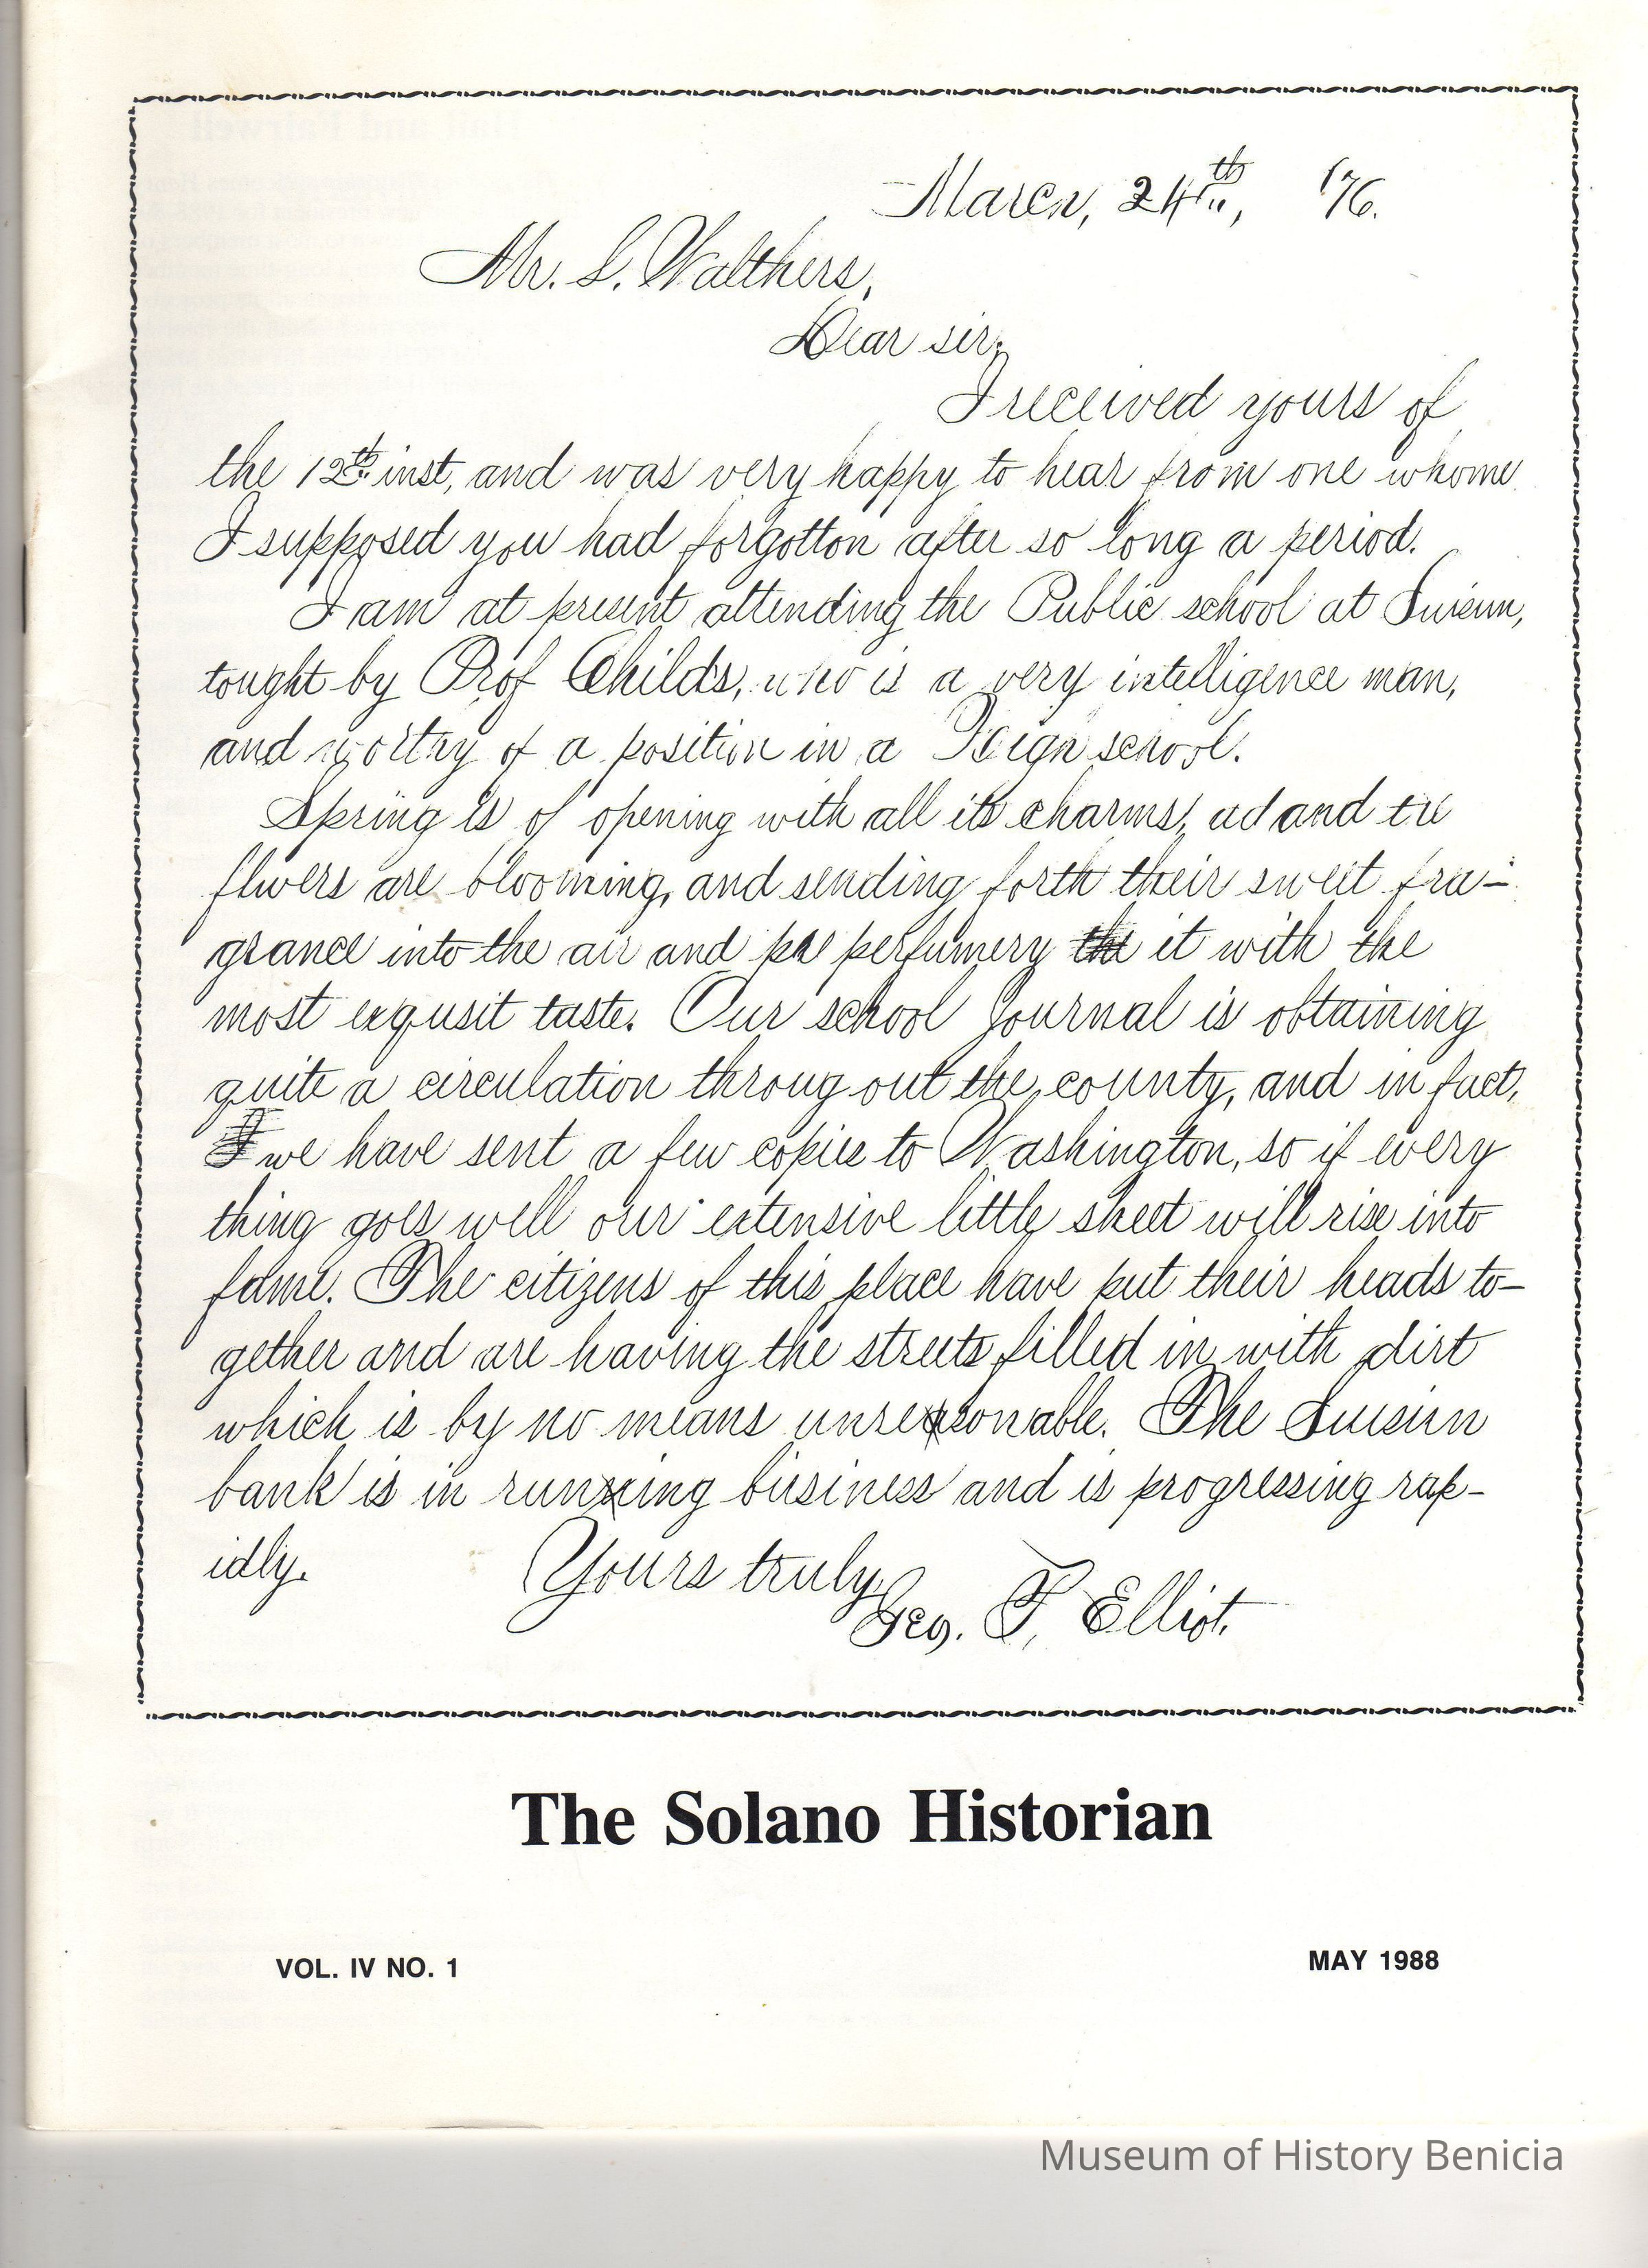 March, 24th, '76.
Mr. S. Walthers,
Dear sir;
I received yours of
the 12th inst, and was very happy to hear from one whome
I supposed you had forgotton after so long a period.
I am at present attending the Public school at Suisun,
tought by Prof Childs, who is a very intelligence man,
and worthy of a position in a High school.
Spring is of opening with all its charms, ad and the
flwers are blooming, and sending forth their sweet fra-
grance into the air and pre perfumery the it with the
most exqusit taste. Our school Journal is obtaining
quite a circulation throug out the county, and in fact,
I we have sent a few copies to Washington, so if every
thing goes well our extensive little sheet will rise into
fame. The citizens of this place have put their heads to-
gether and are having the streets filled in with dirt
which is by no means unreasonable. The Suisun
bank is in running business and is progressing rap-
idly. Yours truly,
Geo. T. Elliot.
The Solano Historian
VOL. IV NO. 1 MAY 1988
Museum of History Benicia